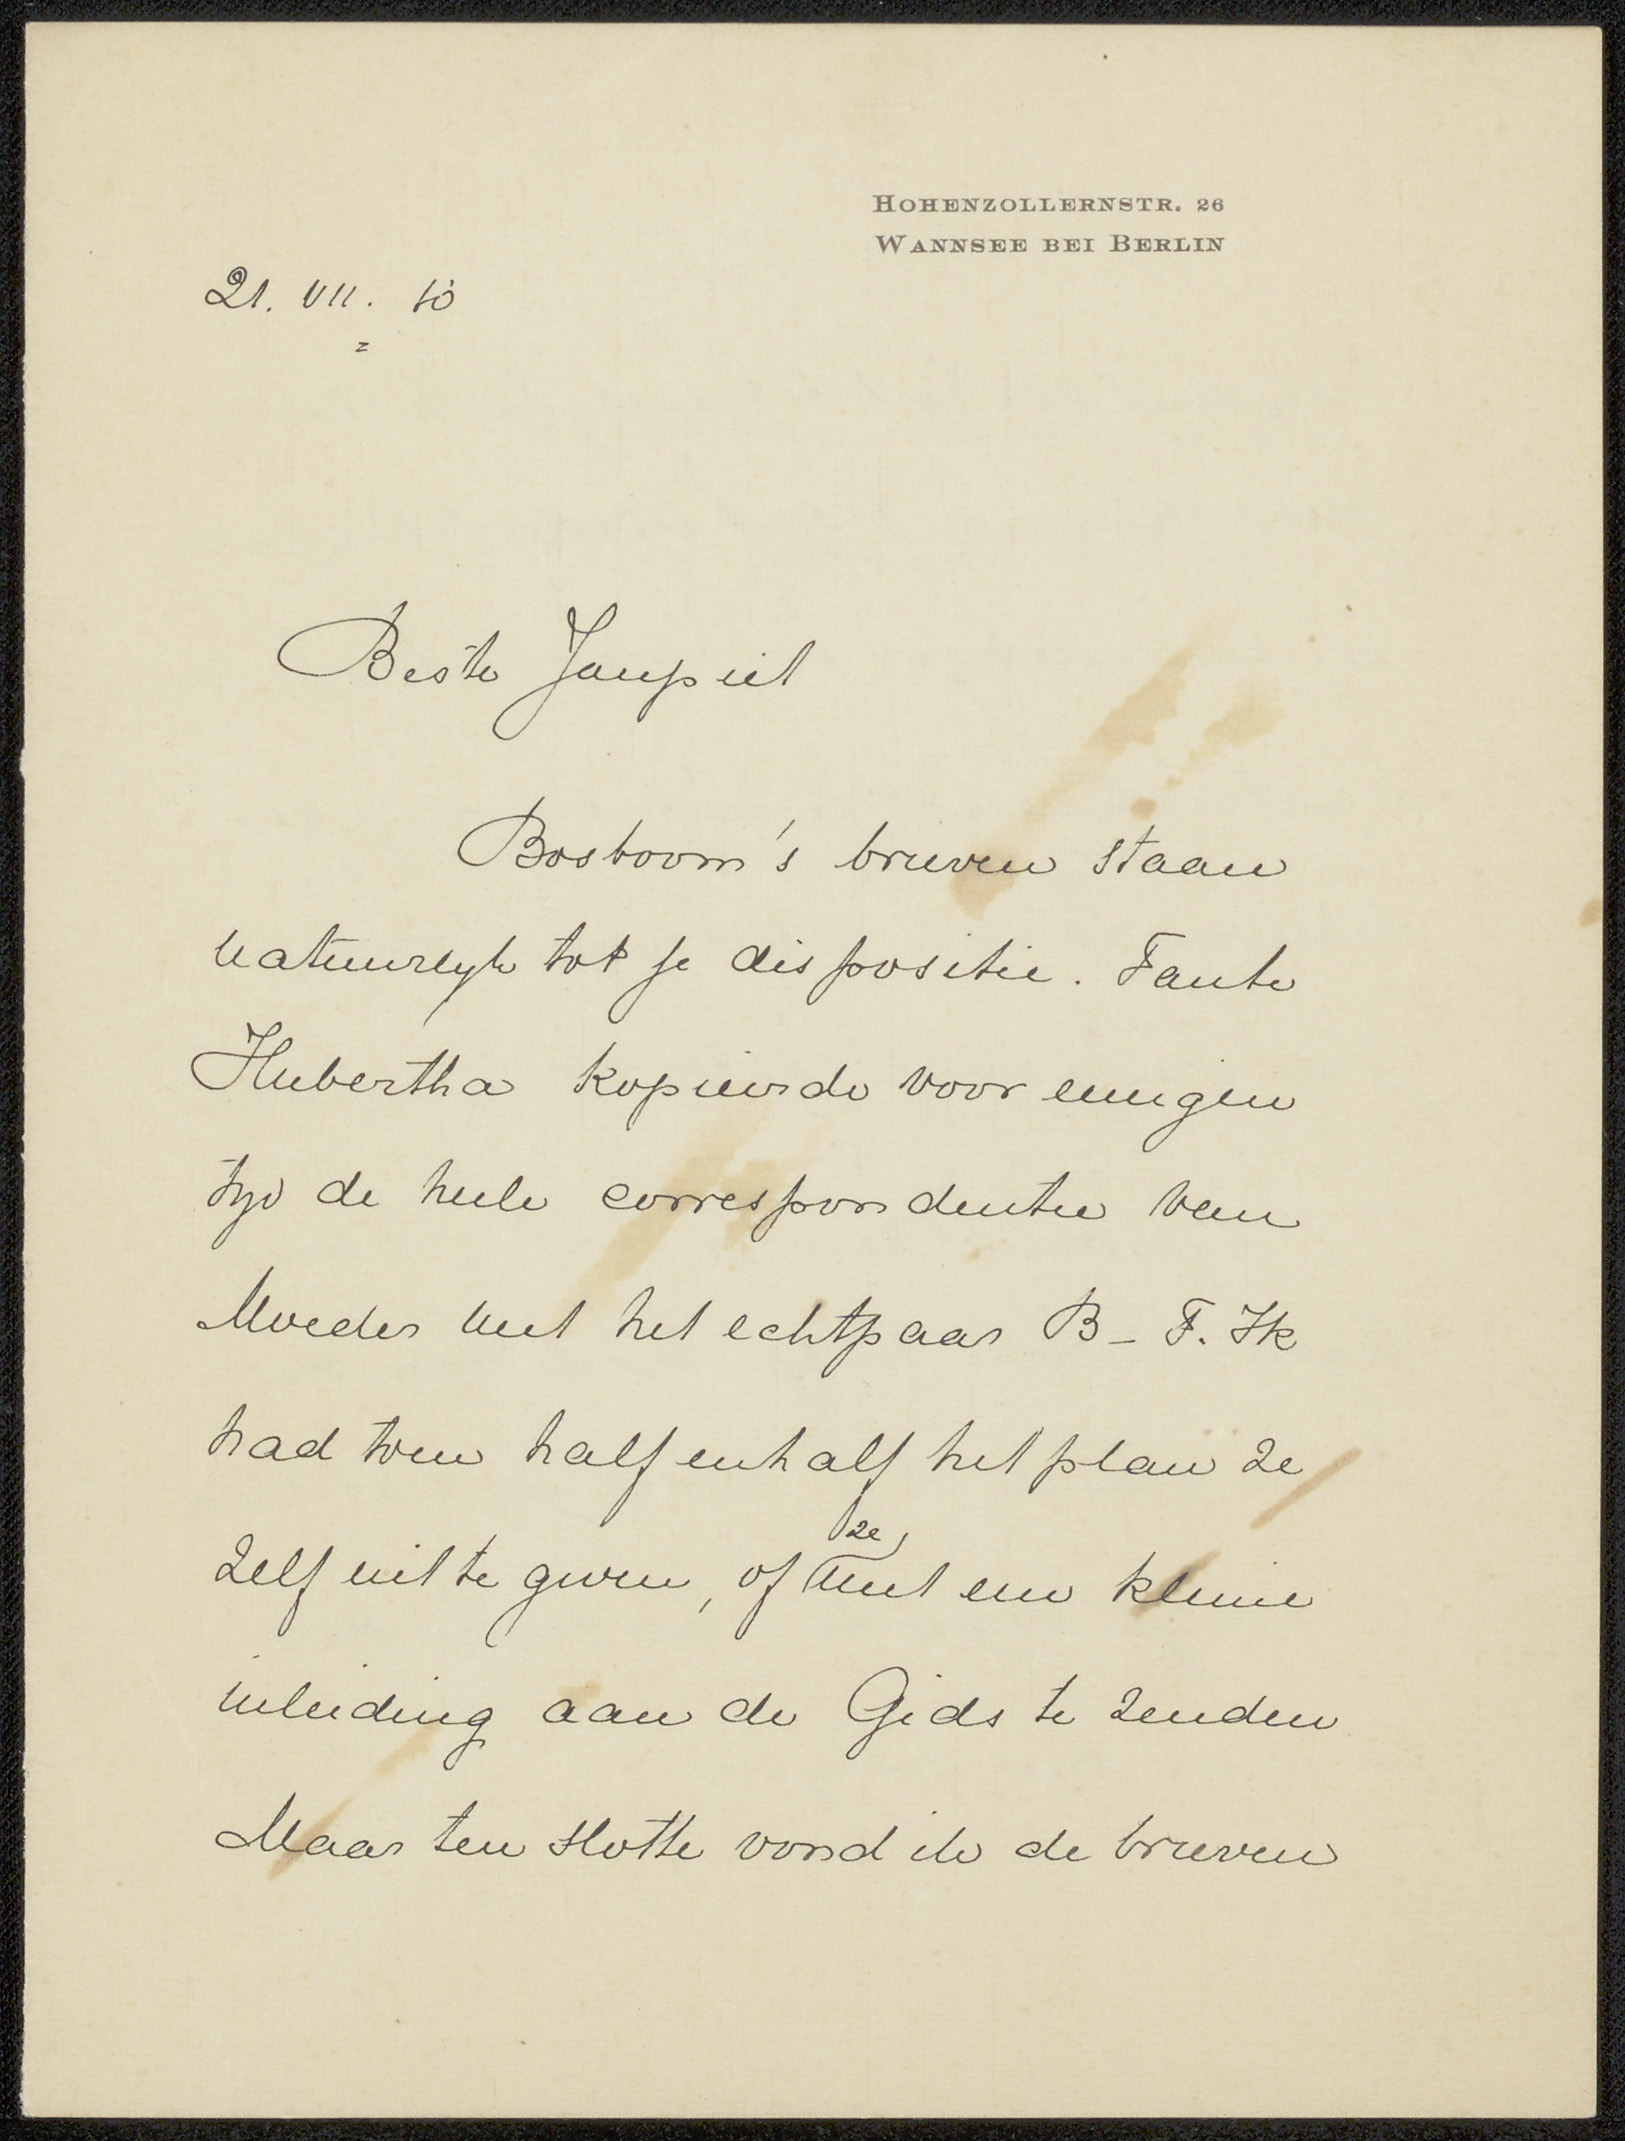 HOHENZOLLERNSTR. 26
WANNSEE BEI BERLIN
21. VII. 10
Beste Janpiet
Bosboom's brieven staan
natuurlyk tot je dispositie. Tante
Hubertha kopieerde voor eenigen
tyd de heele correspondentie van
Moeder met het echtpaar B - T. Ik
had toen half en half het plan ze
zelf uit te geven, of ze met een kleine
inleiding aan de Gids te zenden
Maar ten slotte vond ik de brieven